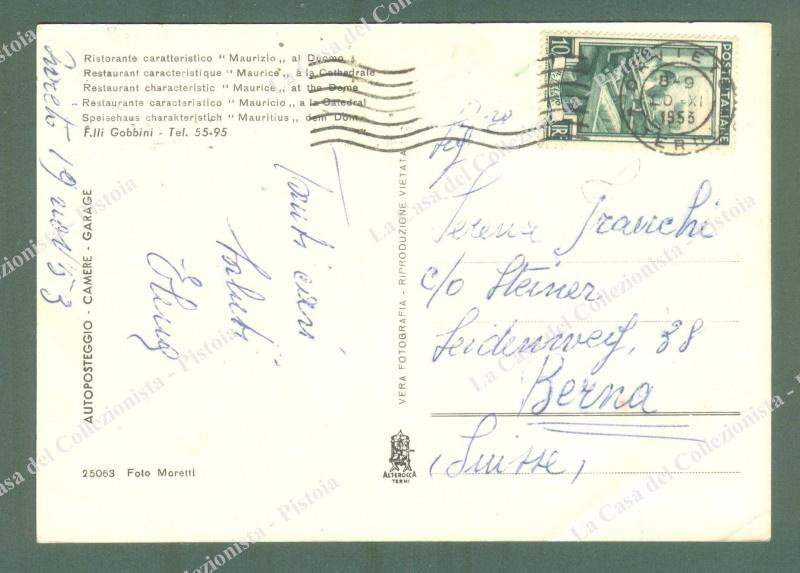 Ristorante caratteristico “ Maurizio „ al Duomo
Restaurant caracteristique “ Maurice „ à la Cathedrale
Restaurant characteristic “ Maurice „ at the Dome
Restaurante caracteristico “ Mauricio „ a la Catedral
Speisehaus charakteristich “ Mauritius „ dem Dom
F.lli Gobbini - Tel. 55-95
AUTOPOSTEGGIO - CAMERE - GARAGE
Tanti cari
saluti
VERA FOTOGRAFIA - RIPRODUZIONE VIETATA
10
LIRE
POSTE ITALIANE
8-9
XI
1953
Serena Franchi
c/o Steiner
Seidenweg, 38
Berna
(Suisse)
25063 Foto Moretti
ALTEROCCA
TERNI
La Casa del Collezionista - Pistoia